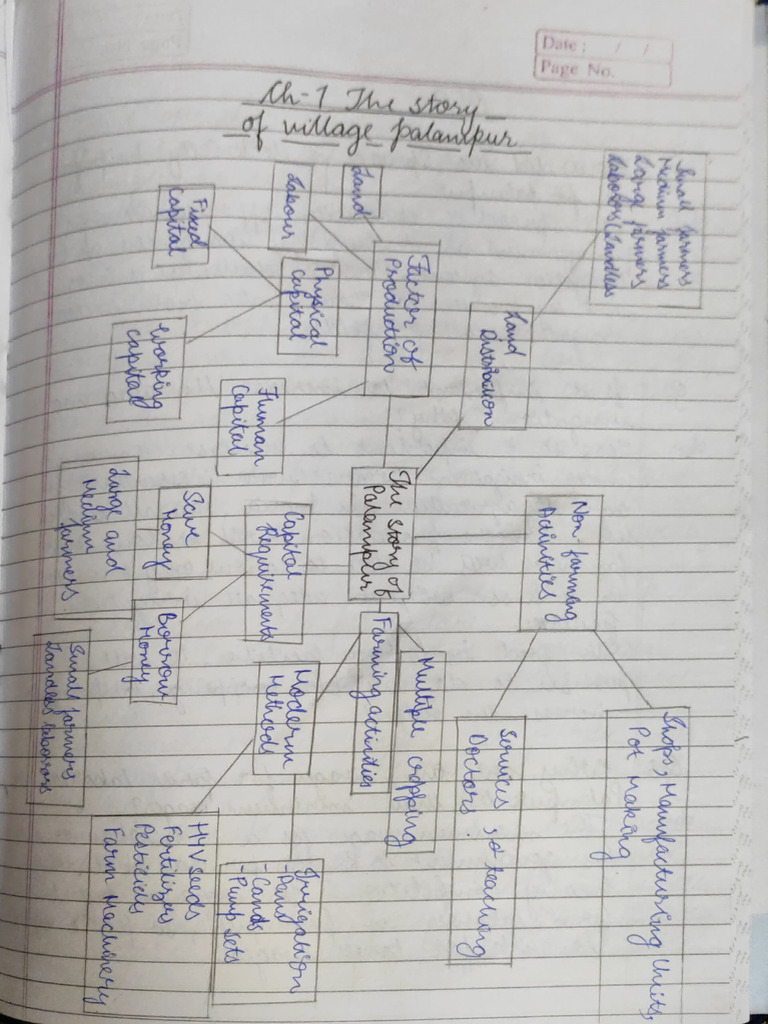 Date : / /
Page No.
Ch-1 The story
of village palampur
Small farmers
Medium farmers
Large farmers
Land
Distribution
Land
Labour
Factor of
Production
Physical
Capital
Fixed
Capital
Working
Capital
Human
Capital
The story of
Palampur
Non-farming
Shops, Manufacturing Units,
Pot Making
Services, teaching
Doctors.
Farming activities
Multiple cropping
Modern
Methods
Irrigation
-Pump Sets
HYV Seeds
Fertilizers
Farm Machinery
Capital
Requirements
Save
Money
Large and
Medium
farmers.
Borrow
Money
Small farmers